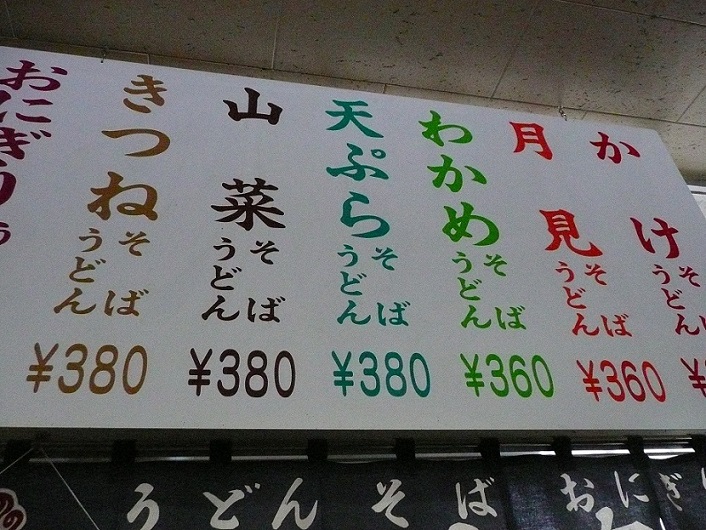 かけ
そば
うどん
¥
月見
そば
うどん
¥360
わかめ
そば
うどん
¥360
天ぷら
そば
うどん
¥380
山菜
そば
うどん
¥380
きつね
そば
うどん
¥380
おにぎり
うどん そば おにぎ